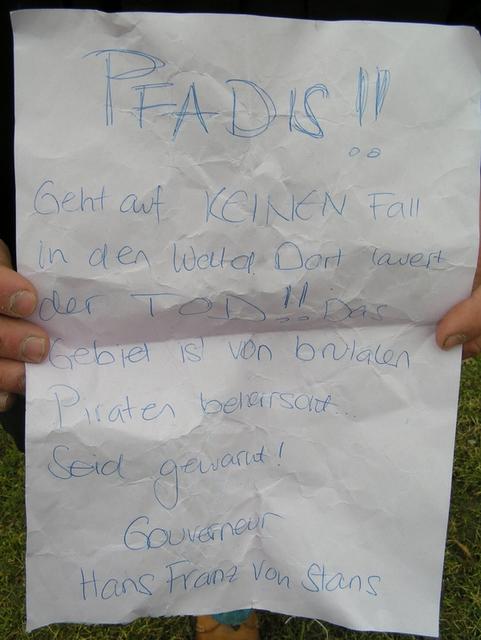 PFADIS!!
Geht auf KEINEN Fall
in den Wald. Dort lauert
der TOD!! Das
Gebiet ist von brutalen
Piraten beherrscht...
Seid gewarnt!
Gouverneur
Hans Franz von Stans